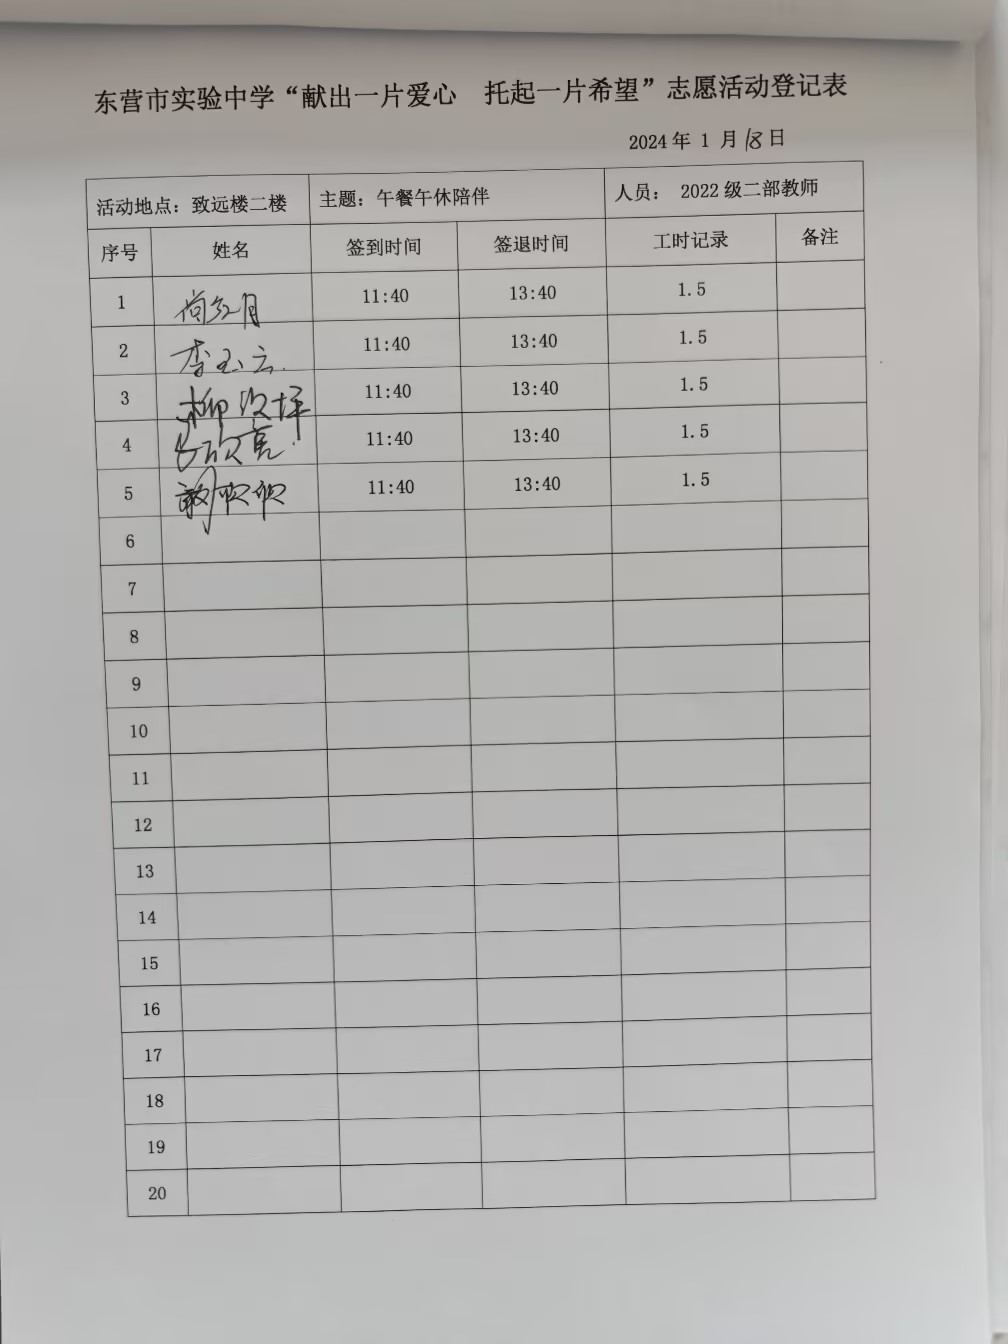 东营市实验中学“献出一片爱心 托起一片希望”志愿活动登记表
2024 年 1 月 18 日
活动地点：致远楼二楼 主题：午餐午休陪伴 人员： 2022 级二部教师
序号 姓名 签到时间 签退时间 工时记录 备注
1 尚红月 11:40 13:40 1.5
2 李玉云 11:40 13:40 1.5
3 柳 11:40 13:40 1.5
4 11:40 13:40 1.5
5 11:40 13:40 1.5
6
7
8
9
10
11
12
13
14
15
16
17
18
19
20